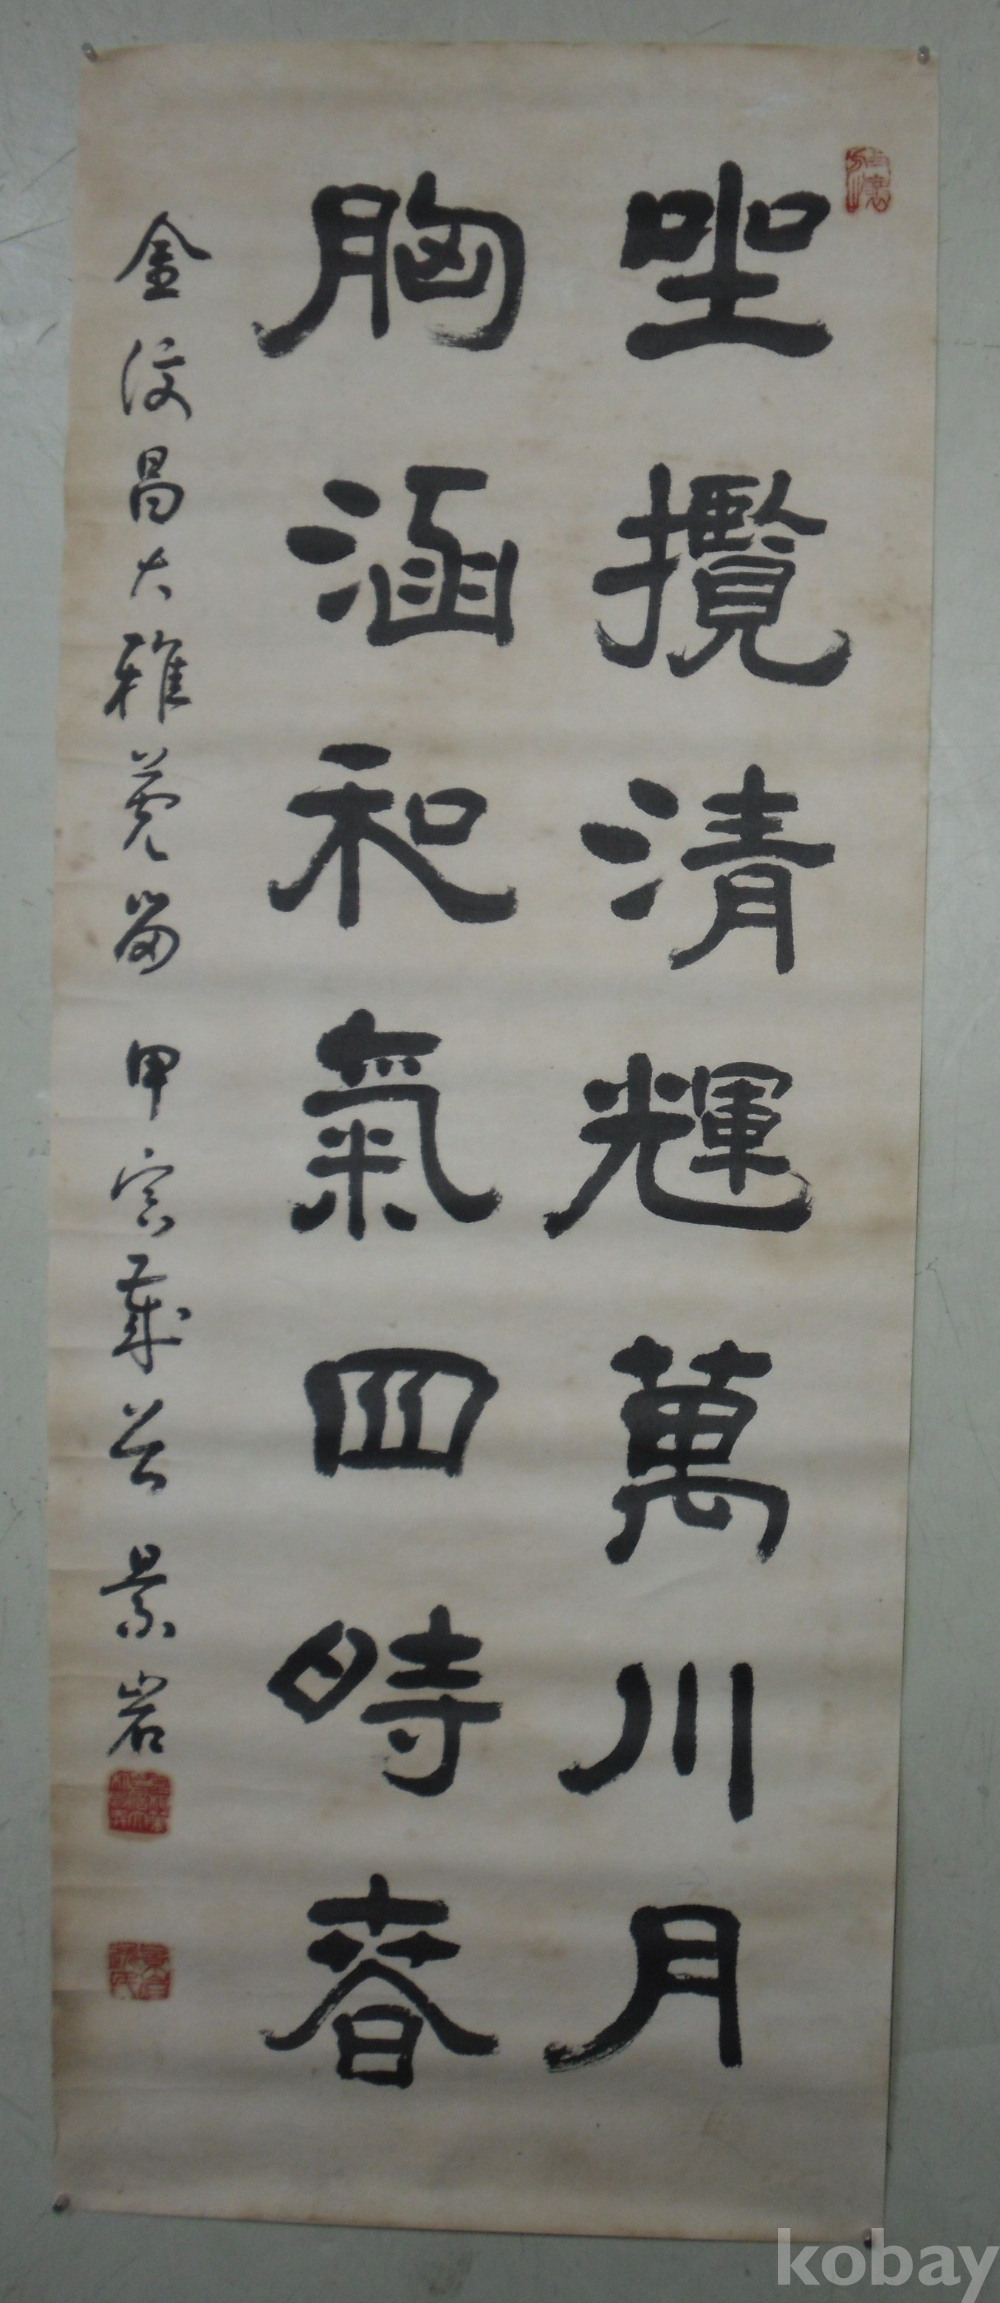 坐攬清輝萬川月
胸涵和氣四時春
金汶昌大雅莞留 甲寅歲首 景岩
kobay